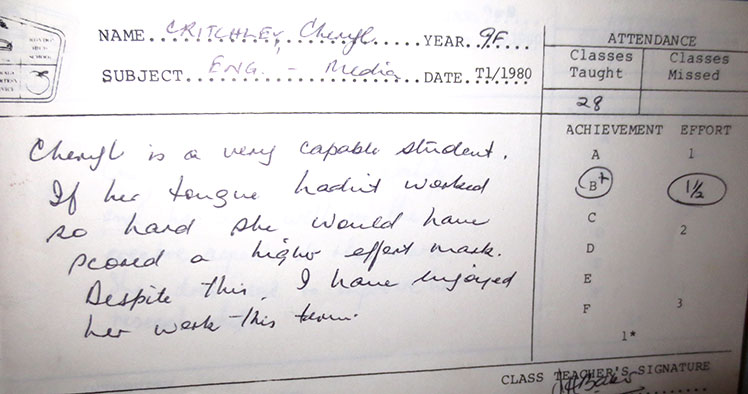 NAME...CRITCHLEY, Cheryl...YEAR..9F...
SUBJECT...ENG. - Media...DATE. T1/1980
ATTENDANCE
Classes Taught
Classes Missed
28
Cheryl is a very capable student.
If her tongue hadn't worked
so hard she would have
scored a higher effort mark.
Despite this, I have enjoyed
her work this term.
ACHIEVEMENT EFFORT
A 1
B+ 1½
C
2
D
E
F 3
1*
CLASS TEACHER'S SIGNATURE